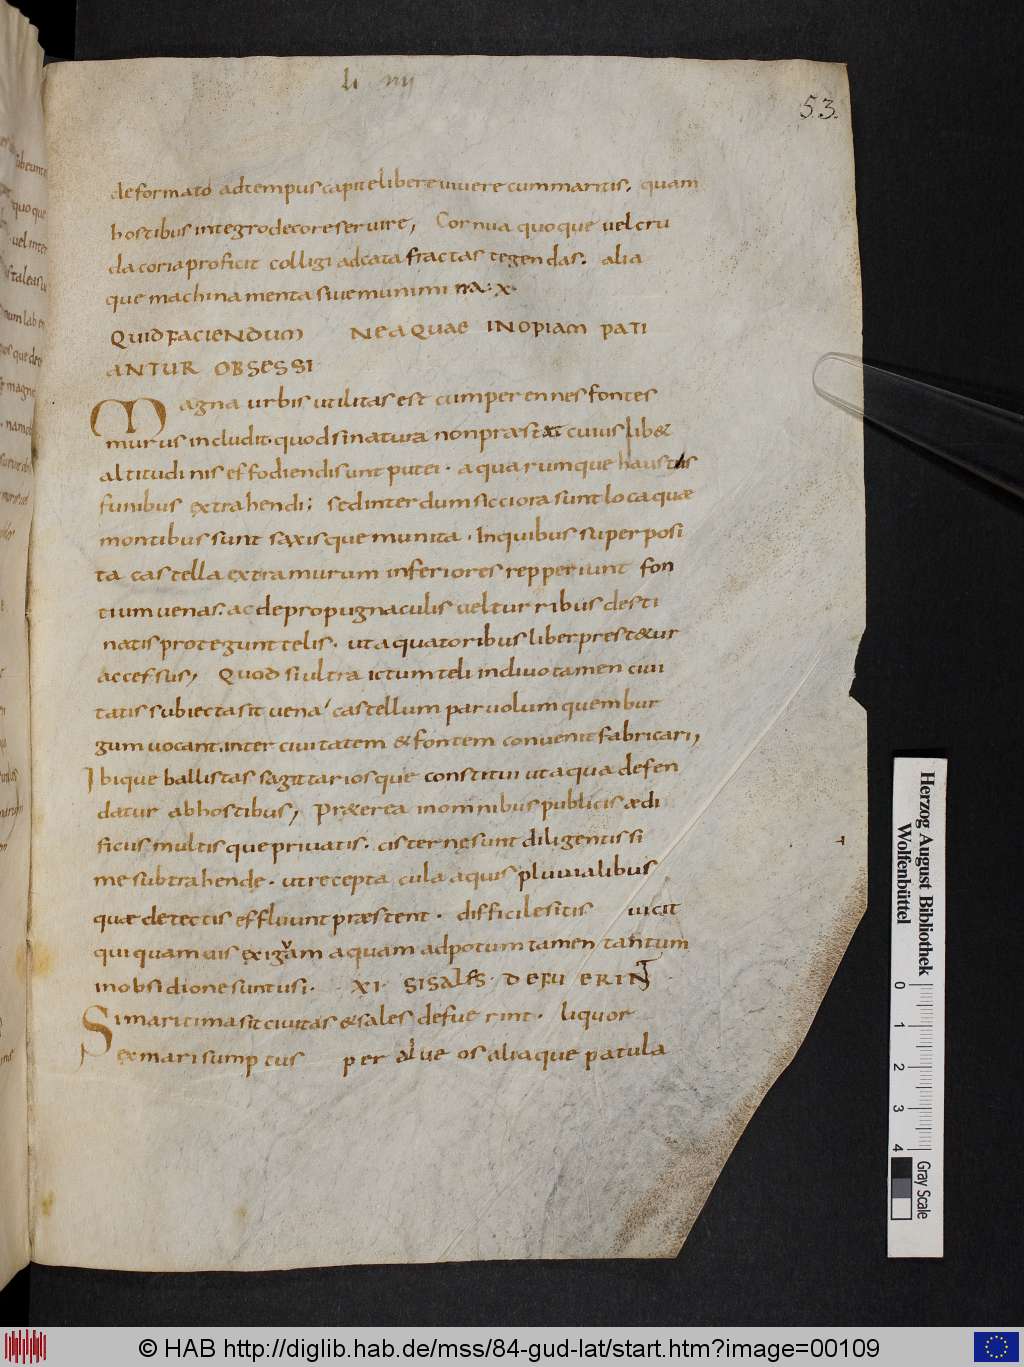 li iiij
53.
deformato adtempus capite libere vivere cum maritis. quam
hostibus integro decore servire, Cornua quoque vel cru
da coria proficit colligi ad cata fractas tegendas. alia
que machinamenta sive munimina. x.
QUID FACIENDUM NE AQUAE INOPIAM PATI
ANTUR OBSESSI
Magna urbis utilitas est cum perennes fontes
murus includit. quod si natura non præstat cuius lib&
altitudinis effodiendi sunt putei. aquarumque haustus
funibus extrahendi; sed interdum sicciora sunt loca quæ
montibus sunt saxisque munita. In quibus superposi
ta castella extra murum inferiores repperiunt fon
tium venas. ac de propugnaculis vel turribus desti
natis protegunt telis. ut aquatoribus liber prest&ur
accessus, Quod si ultra ictum teli in divo tamen civi
tatis subiecta sit vena castellum parvolum quem bur
gum vocant. inter civitatem & fontem convenit fabricari,
Ibique ballistas sagittariosque constitui ut aqua defen
datur ab hostibus, Præterea in omnibus publicis ædi
ficiis multisque privatis. cisterne sunt diligentissi
me subtrahende. ut receptacula aquis pluvialibus
quæ de tectis effluunt præstent. difficile sitis vicit
qui quamvis exiguam aquam ad potum tamen tantum
in obsidione sunt usi. XI. SI SALES. DEFUERINT
Si maritima sit civitas & sales defuerint. liquor
ex mari sumptus per alveos aliaque patula
Herzog August Bibliothek
Wolfenbüttel
0 1 2 3 4
Gray Scale
© HAB http://diglib.hab.de/mss/84-gud-lat/start.htm?image=00109